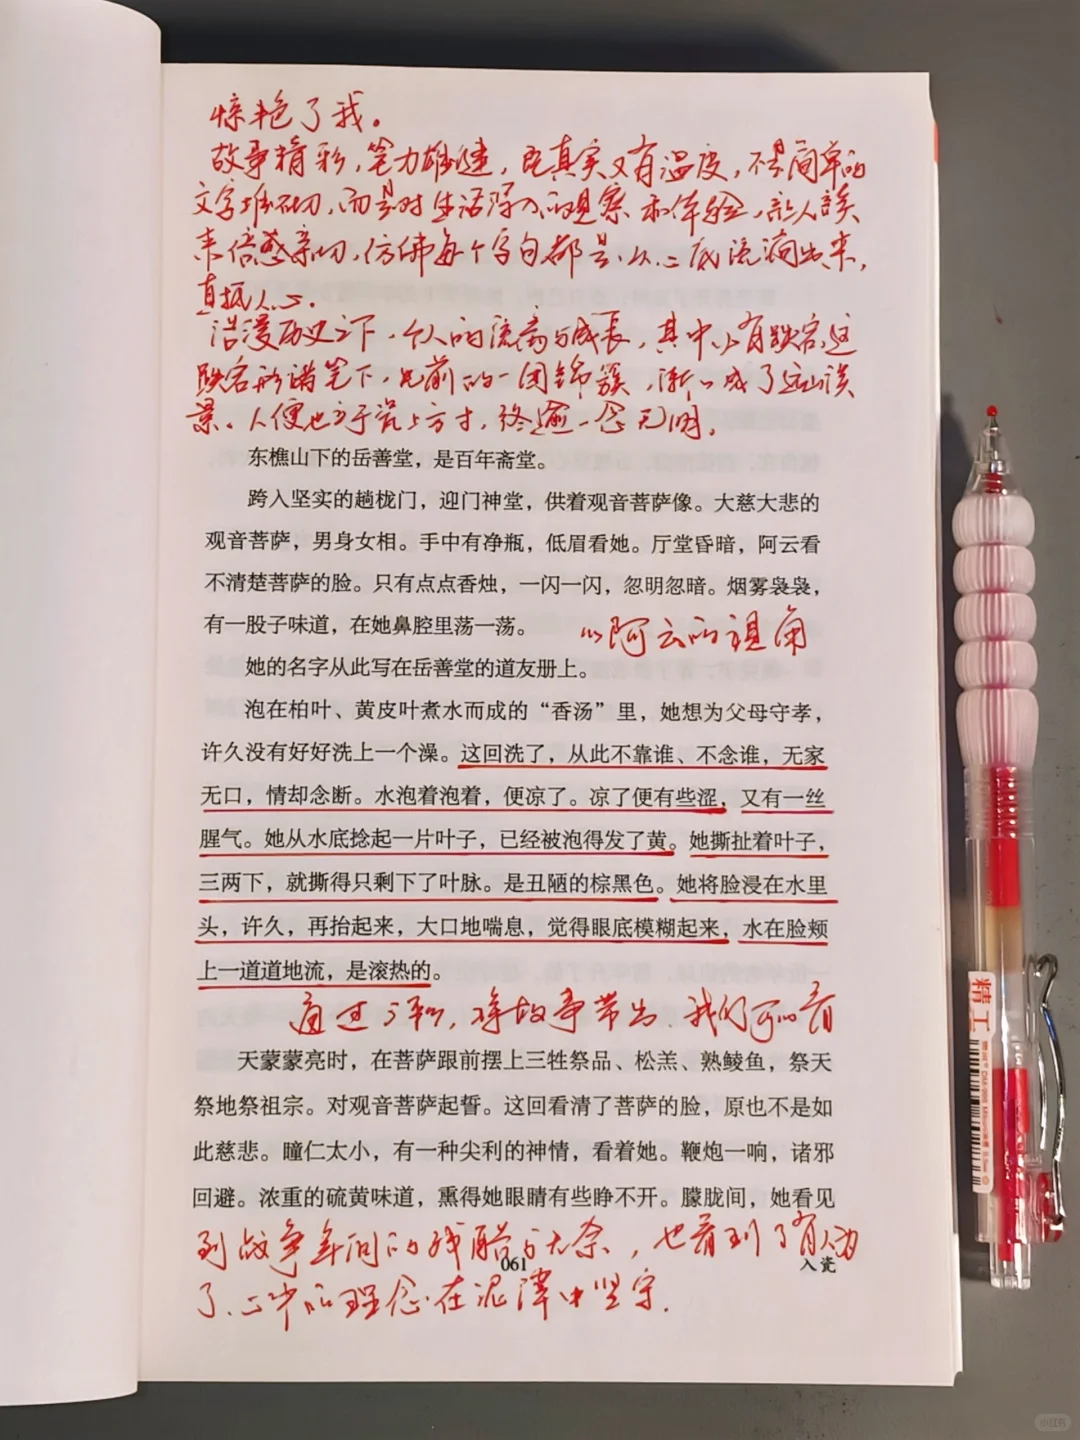 惊艳了我。
故事精彩,笔力雄健,既真实又有温度,不是简单的
文字堆砌,而是对生活深入的观察和体验,让人读
来倍感亲切,仿佛每个字句都是从心底流淌出来,
直抵人心。
浩漫历史之下,个人的流离与成长,其中
笔下,眼前的一团锦簇,渐渐成了远山淡
景。人便也于瓷上方寸,终逾一念无明。
东樵山下的岳善堂,是百年斋堂。
跨入坚实的趟栊门,迎门神堂,供着观音菩萨像。大慈大悲的
观音菩萨,男身女相。手中有净瓶,低眉看她。厅堂昏暗,阿云看
不清楚菩萨的脸。只有点点香烛,一闪一闪,忽明忽暗。烟雾袅袅,
有一股子味道,在她鼻腔里荡一荡。
以阿云的视角
她的名字从此写在岳善堂的道友册上。
泡在柏叶、黄皮叶煮水而成的“香汤”里,她想为父母守孝,
许久没有好好洗上一个澡。这回洗了,从此不靠谁、不念谁,无家
无口,情却念断。水泡着泡着,便凉了。凉了便有些涩,又有一丝
腥气。她从水底捻起一片叶子,已经被泡得发了黄。她撕扯着叶子,
三两下,就撕得只剩下了叶脉。是丑陋的棕黑色。她将脸浸在水里
头,许久,再抬起来,大口地喘息,觉得眼底模糊起来,水在脸颊
上一道道地流,是滚热的。
通过 将故事带出,我们可以看
天蒙蒙亮时,在菩萨跟前摆上三牲祭品、松羔、熟鲮鱼,祭天
祭地祭祖宗。对观音菩萨起誓。这回看清了菩萨的脸,原也不是如
此慈悲。瞳仁太小,有一种尖利的神情,看着她。鞭炮一响,诸邪
回避。浓重的硫黄味道,熏得她眼睛有些睁不开。朦胧间,她看见
到战争年间的残酷与无奈,也看到了有人为
061
入瓷
了心中的理念在泥潭中坚守.
精工
小红书